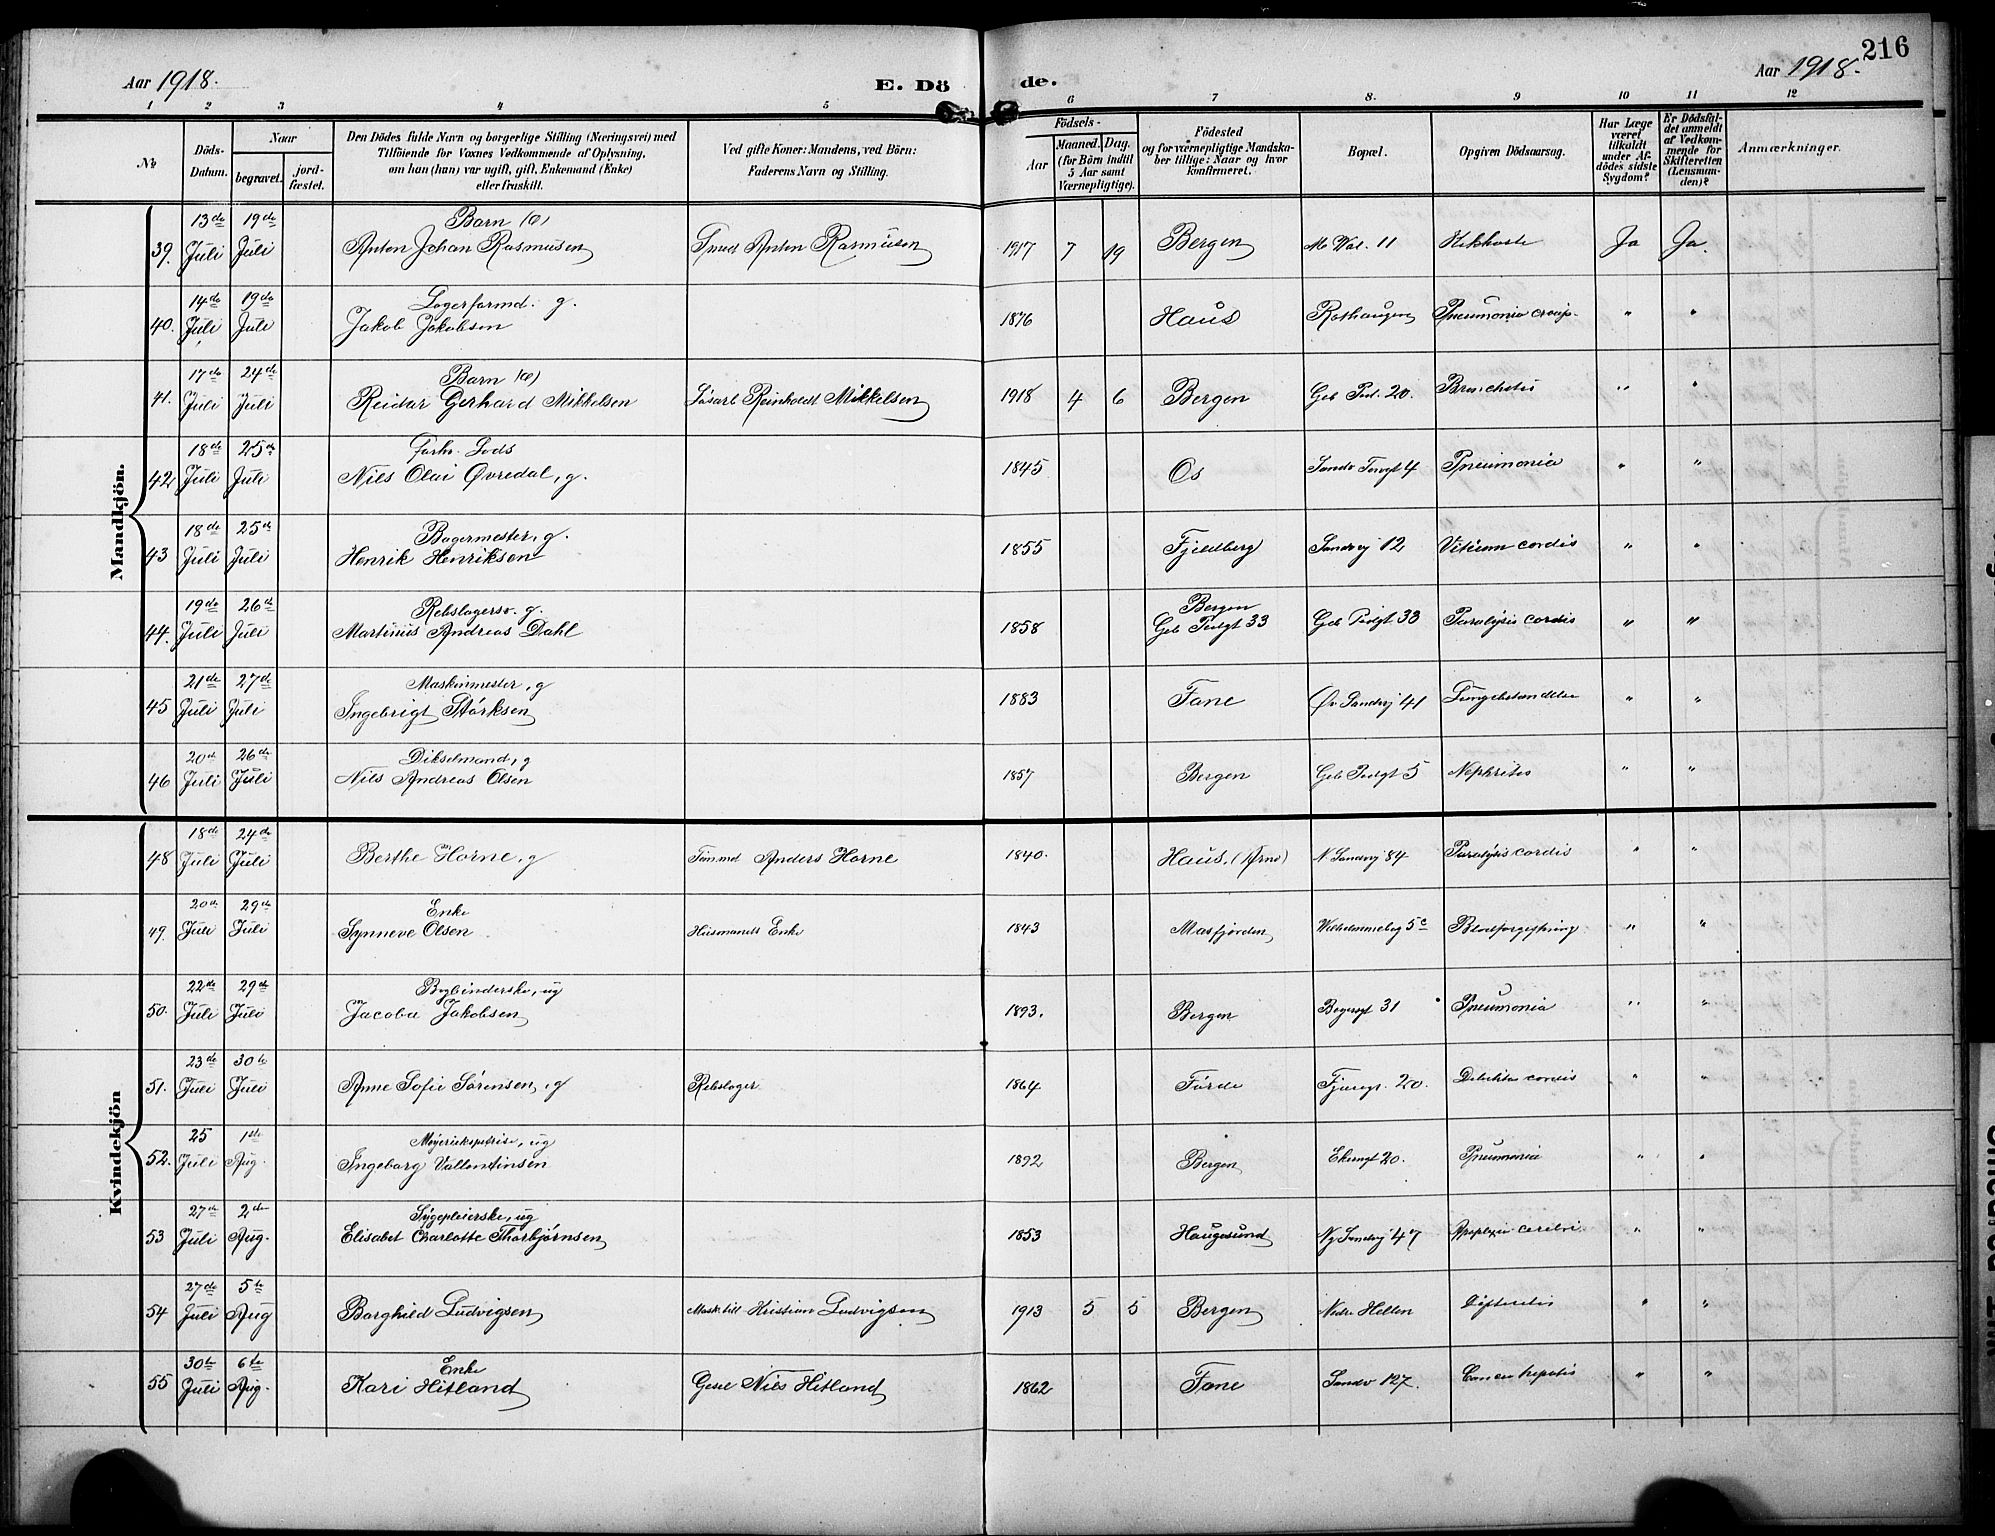 216
Aar 1918.
E. Döde.
Aar 1918.
1 2 3 4 5 6 7 8. 9 10 11 12
No
Döds-Datum.
Naar
begravet.
jord-fæstet.
Den Dödes fulde Navn og borgerlige Stilling (Næringsvei) med
Tilföiende for Voxnes Vedkommende af Oplysning,
om han (hun) var ugift, gift, Enkemand (Enke)
eller fraskilt.
Ved gifte Koner: Mandens, ved Börn:
Faderens Navn og Stilling.
Födsels-
Aar
Maaned. Dag.
(for Börn indtil
5 Aar samt
Værnepligtige).
Födested
og for værnepligtige Mandska-
ber tillige: Naar og hvor
konfirmeret.
Bopæl.
Opgiven Dödsaarsag.
Har Læge
været
tilkaldt
under Af-
dödes sidste
Sygdom?
Er Dödsfal-
det anmeldt
af Vedkom-
mende for
Skifteretten
(Lensman-
den)?
Anmærkninger.
Mandkjön.
13de 19de Barn
39. Juli Juli Anton Johan Rasmussen Knud Anton Rasmussen 1917 7 19 Bergen 11 Kikhoste Ja Ja.
14de 19de Lagerformd. g.
40. Juli Juli Jakob Jakobsen 1876 Haus Rothaugen Pneumonia croup. " "
17de 24de Barn
41. Juli Juli Reidar Gerhard Mikkelsen Reinholdt Mikkelsen 1918 4 6 Bergen 20. Bronchitis " "
18de 25de Forh. Lods
42 Juli Juli Nils Olai Øvredal, g. 1845 Os Sandv. Torvgt 4 Pneumonia " "
18de 25de Bagermester, g.
43 Juli Juli Henrik Henriksen 1855 Fjeldberg Sandvj 12 Vitium cordis " "
19de 26de Rebslagersv. g. Bergen
44. Juli Juli Martinus Andreas Dahl 1858 33 33 Paralysis cordis " "
21de 27de Maskinmester, g
45 Juli Juli Ingebrigt Størksen 1883 Fane Øv Sandvj 41 " "
20de 26de g
46 Juli Juli Nils Andreas Olsen 1857 Bergen 5 Nephritis " "
Kvindekjön
18de 24de
48 Juli Juli Berthe Horne, g Tømmd Anders Horne 1840. Haus. (Arne) N Sandvj 84 Paralysis cordis " "
20de 29de Enke
49. Juli Juli Synneve Olsen Husmands Enke 1843 Masfjorden 5c Blodforgiftning " "
22de 29de Bogbinderske, ug
50. Juli Juli Jacoba Jakobsen 1893. Bergen 31 Pneumonia " "
23de 30te
51. Juli Juli Anne Sofie Sørensen, g Rebslager 1864 Førde 20. cordis " "
25 1ste ug
52. Juli Aug. Ingeborg Vallentinsen 1892 Bergen Ekregt 20. Pneumonia " "
27de 2den Sygepleierske, ug
53 Juli Aug. Elisabet Charlotte Thorbjørnsen 1853 Haugesund Ny Sandvj 47 Apoplexia cerebri " "
27de 5te
54 Juli Aug Borghild Ludvigsen Kristian Ludvigsen 1913 5 5 Bergen Nedre Hellen Difteritis " "
30te 6te Enke
55 Juli Aug. Kari Hitland Nils Hitland 1862 Fane Sandv 127. Cancer hepatis " "